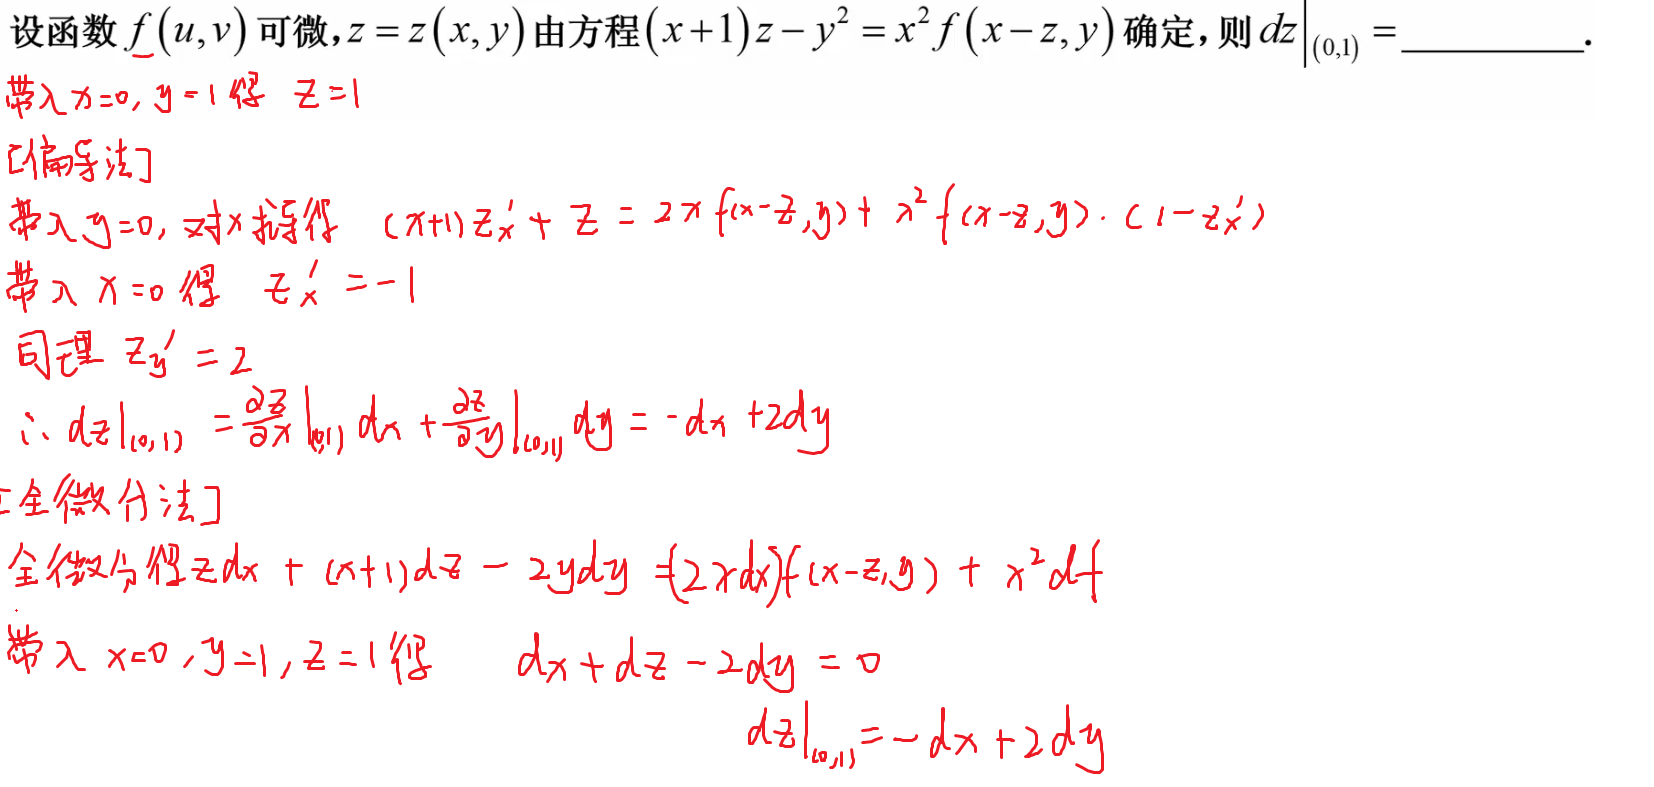 设函数 f(u,v) 可微, z = z(x,y) 由方程 (x+1)z − y² = x² f(x−z, y) 确定, 则 dz|(0,1) = ________.
带入 x=0, y=1 得 z=1
[偏导法]
带入 y=0, 对x求导得 (x+1)z'x + z = 2x f(x-z,y) + x² f(x-z,y)·(1-z'x)
带入 x=0 得 z'x = -1
同理 zy' = 2
∴ dz|(0,1) = ∂z/∂x|(0,1) dx + ∂z/∂y|(0,1) dy = -dx +2dy
[全微分法]
全微分得 zdx + (x+1)dz - 2ydy = (2xdx)f(x-z,y) + x²df
带入 x=0, y=1, z=1得 dx+dz-2dy = 0
dz|(0,1) = -dx+2dy